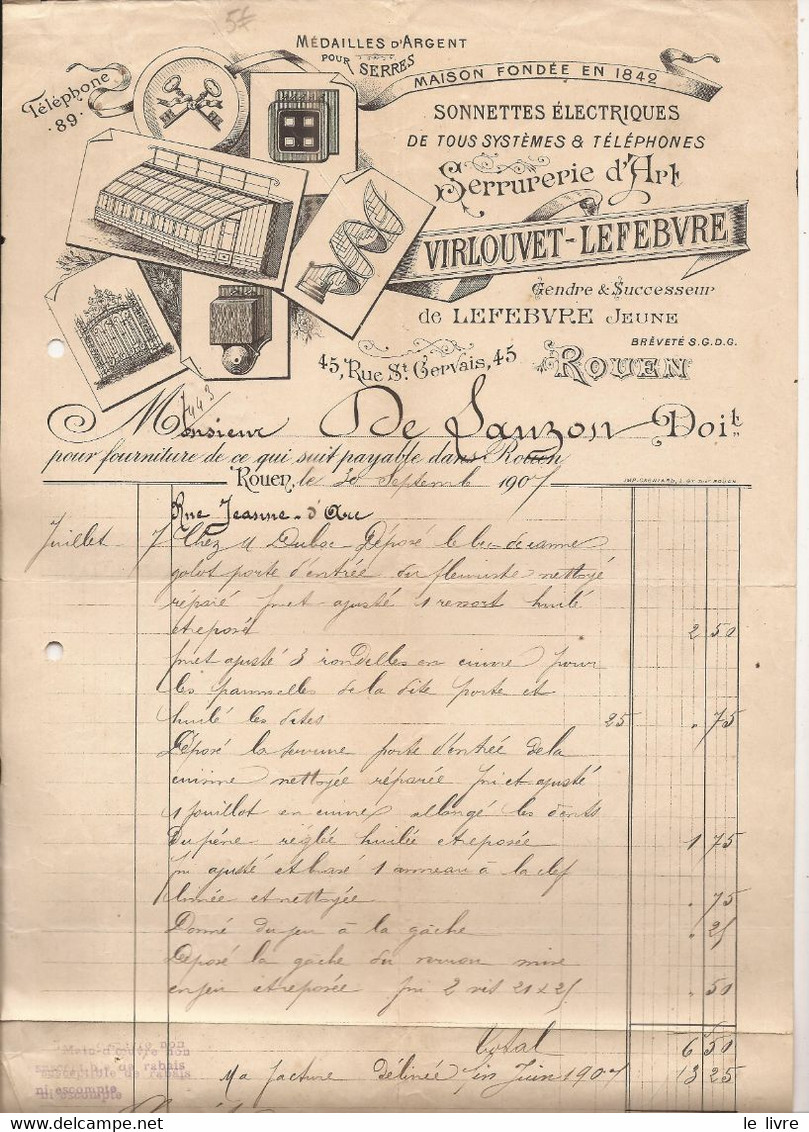 5f
MÉDAILLES D'ARGENT
POUR SERRES
MAISON FONDÉE EN 1842
Téléphone
·89·
SONNETTES ÉLECTRIQUES
DE TOUS SYSTÈMES & TÉLÉPHONES
Serrurerie d'Art
VIRLOUVET-LEFEBVRE
Gendre & Successeur
de LEFEBVRE JEUNE
BRÊVETÉ S.G.D.G.
45, Rue St Gervais, 45
ROUEN
443
Monsieur De Lauzon Doit
pour fourniture de ce qui suit payable dans Rouen
Rouen, le 30 Septemb 1907
Rue Jeanne-d'Arc
Juillet 7 Chez M Dubsc Déposé le bec de canne
porte d'entrée du fleuriste nettoyé
réparé fni et ajusté 1 ressort huilé
et reposé 2 50
fni et ajusté 3 rondelles en cuivre pour
les paumelles de la dite porte et
huilé les dites 25 " 75
Déposé la serrure porte d'entrée de la
cuisine nettoyée réparée fni et ajusté
1 fouillot en cuivre allongé les dents
du pêne réglée huilée et reposée 1 75
fni ajusté et brasé 1 anneau à la clef
limée et nettoyée " 75
Donné du jeu à la gâche " 25
Déposé la gâche du verrou mise
en jeu et reposée fni 2 vis 21 x 25 " 50
Total 6 50
Ma facture délivrée fin Juin 1907 13 25
Main-d'œuvre non
susceptible de rabais
ni escompte
le livre